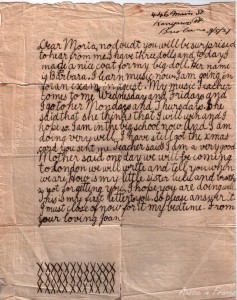 Main St
Kangaroo Pt
Brisbane
Dear Moria, no doubt you will be surprised
to hear from me I have three dolls and today I
made a nice coat for my big doll. Her name
is Barbara. I learn music now I am going in
for an exam in august. My music teacher
comes to me Wednesday and Fridays and
I go to her Mondays and Thursdays. She
said that she thinks that I will win and I
hope so. I am in the big school now. And I am
doing very well. I have still got the xmas
card you sent me. Teacher said I am a very good
Mother said one day we will be coming
to London we will write and tell you when
we are. Now is my little sister Lulu and
not forgetting you. I hope you are doing well.
This is my first letter to you so please answer it.
I must close now for it my bedtime. From
your loving Joan
XXXXXXXXXX
XXXXXXXXXX
XXXXXXXXXX